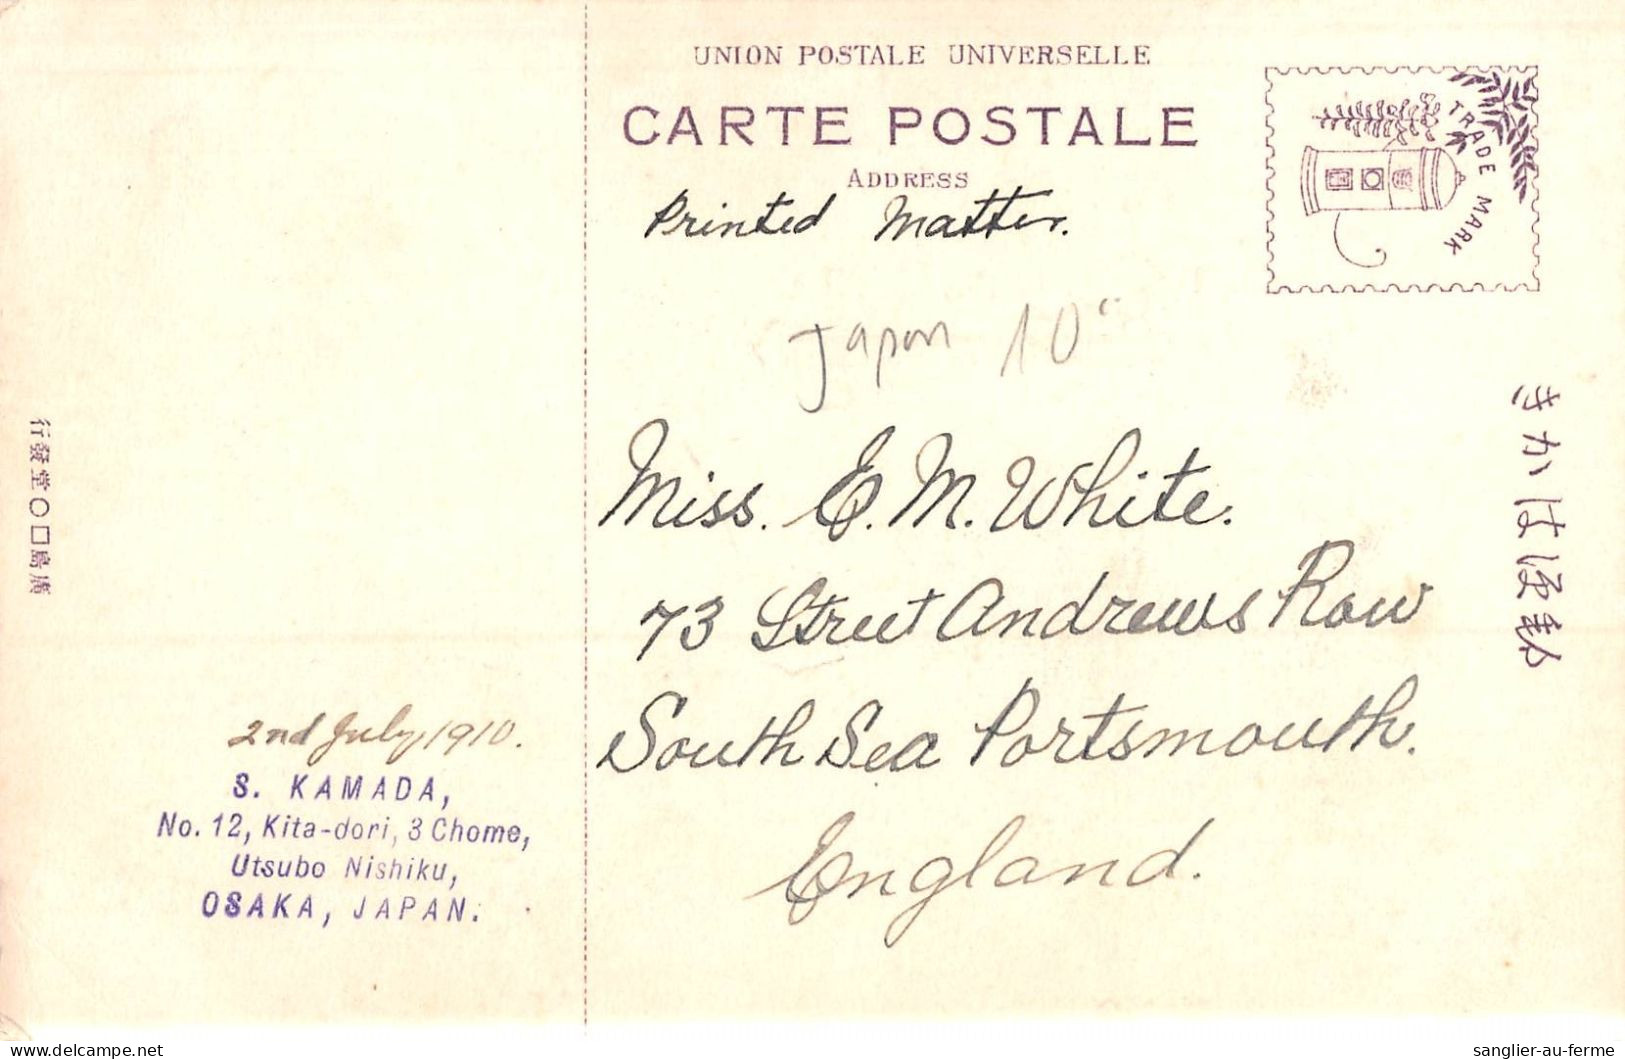 UNION POSTALE UNIVERSELLE
CARTE POSTALE
ADDRESS
TRADE MARK
Printed Matter.
Japon 10"
Miss. E. M. White.
73 Street Andrews Row
South Sea Portsmouth.
England.
2nd July 1910.
S. KAMADA,
No. 12, Kita-dori, 3 Chome,
Utsubo Nishiku,
OSAKA, JAPAN.
行發堂〇口島廣
きかは便郵
delcampe.net
sanglier-au-ferme